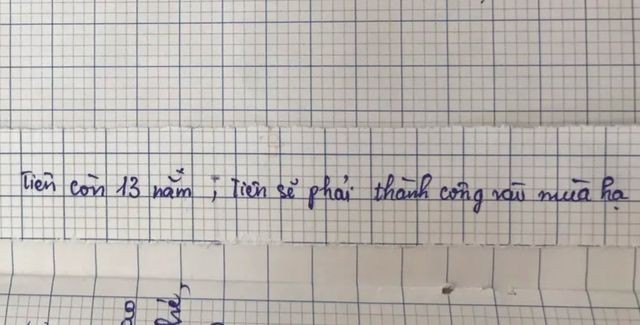 Tiên còn 13 năm ; Tiên sẽ phải thành công vào mùa hạ